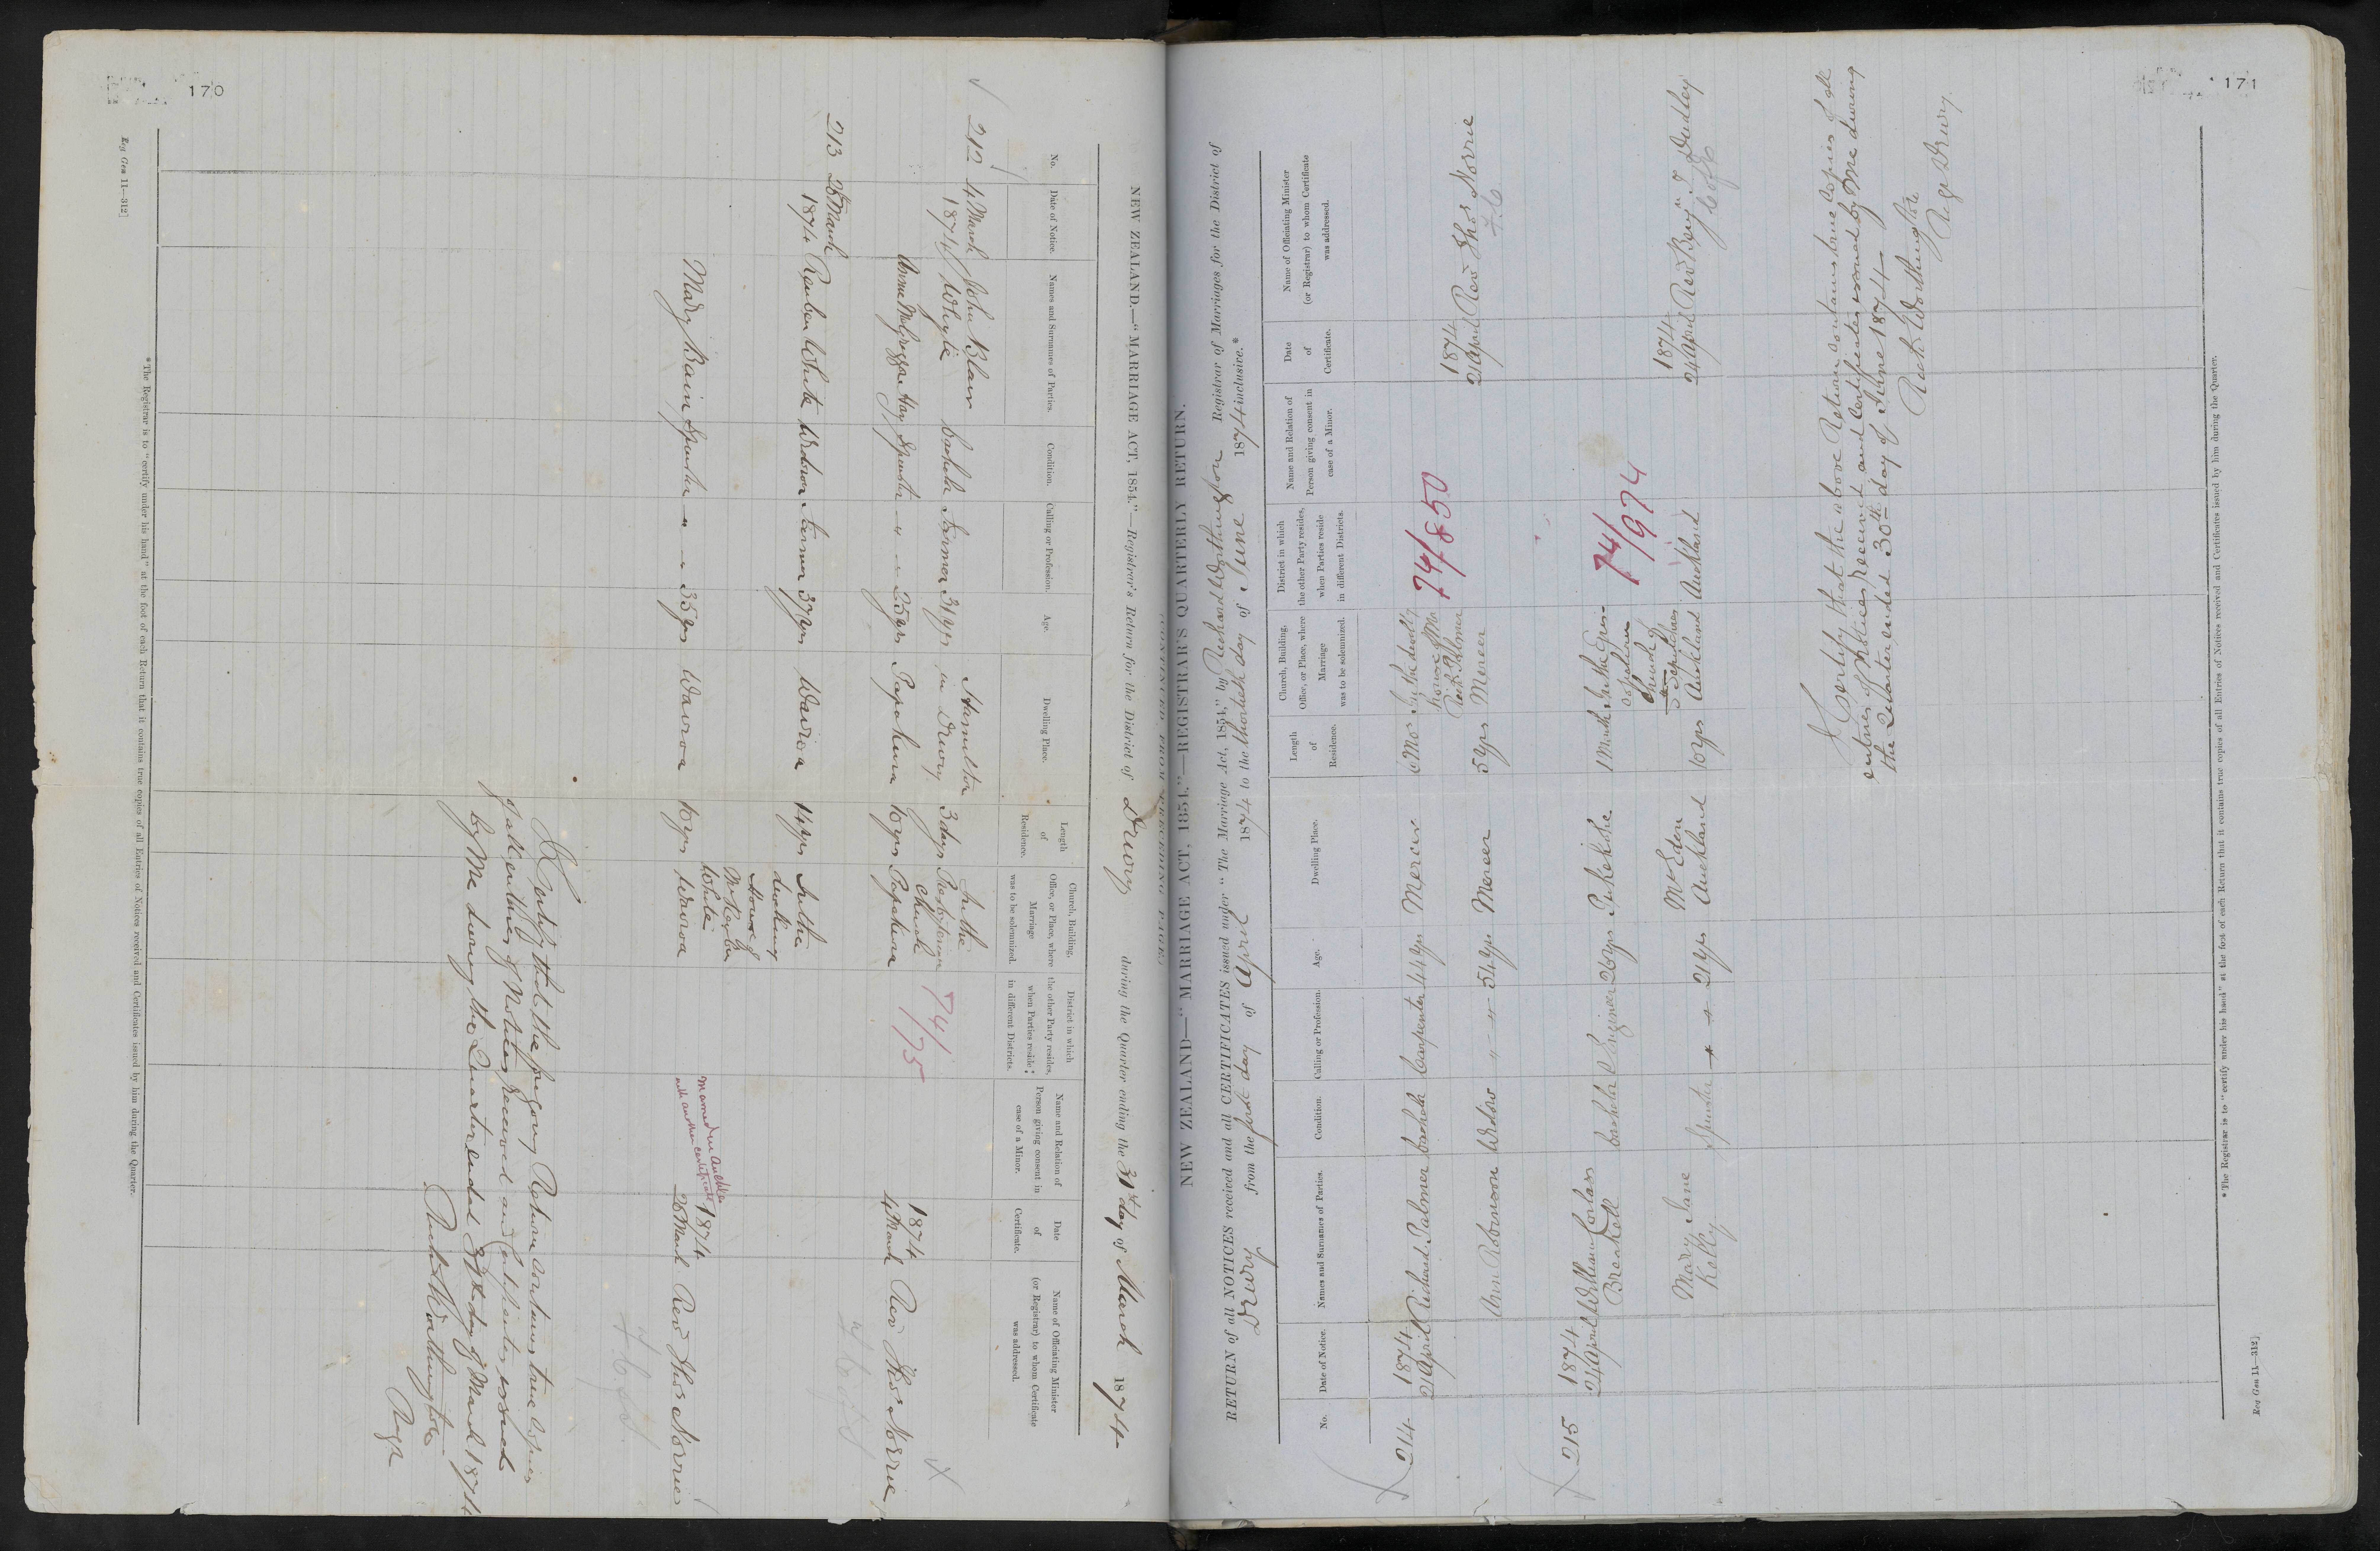 170
NEW ZEALAND.—"MARRIAGE ACT, 1854."—Registrar's Return for the District of Drury during the Quarter ending the 31st day of March 1874
No.
Date of Notice.
Names and Surnames of Parties.
Condition.
Calling or Profession.
Age.
Dwelling Place.
Length of Residence.
Church, Building, Office, or Place, where Marriage was to be solemnized.
District in which the other Party resides, when Parties reside in different Districts.
Name and Relation of Person giving consent in case of a Minor.
Date of Certificate.
Name of Officiating Minister (or Registrar) to whom Certificate was addressed.
212 4 March John Blair Hamilton In the
1874 Whyte Bachelor Farmer 31 yrs in Drury 3 days Presbyterian 74/
Church /75
1874
Spinster " " 25 yrs Papakura 10 yrs Papakura 4 March Rev Thos Norrie
213 28 March
1874 Reuben White Widower Farmer 37 yrs Wairoa 14 yrs In the
dwelling
House of
Mr Reuben
White
married in Auckland
with another certificate
1874
Mary Bain Spinster " " 35 yrs Wairoa 10 yrs Wairoa 28 March Rev Thos Norrie
I Certify that the foregoing Return contains true Copies
of all entries of Notices received and Certificates issued
by Me during the Quarter ended 31st day of March 1874
Richd Worthington
Regr
*The Registrar is to "certify under his hand" at the foot of each Return that it contains true copies of all Entries of Notices received and Certificates issued by him during the Quarter.
Reg Gen 11—312]
171
NEW ZEALAND—"MARRIAGE ACT, 1854,"—REGISTRAR'S QUARTERLY RETURN.
RETURN of all NOTICES received and all CERTIFICATES issued under "The Marriage Act, 1854," by Richard Worthington Registrar of Marriages for the District of
Drury from the first day of April 1874 to the thirtieth day of June 1874 inclusive.*
No.
Date of Notice.
Names and Surnames of Parties.
Condition.
Calling or Profession.
Age.
Dwelling Place.
Length of Residence.
Church, Building, Office, or Place, where Marriage was to be solemnized.
District in which the other Party resides, when Parties reside in different Districts.
Name and Relation of Person giving consent in case of a Minor.
Date of Certificate.
Name of Officiating Minister (or Registrar) to whom Certificate was addressed.
214 1874
21 April Richard Palmer Bachelor Carpenter 44 yrs Mercer 6 Mos In the dwelling 74/850
house of Mr
Richd Palmer
1874
Ann Robinson Widow " " 54 yrs Mercer 5 yrs Mercer 21 April Rev Thos Norrie
215 1874
24 April William Corlass
Breakell Bachelor Engineer 26 yrs Pukekohe 1 Month In the Epis-
copalian
Church of
St Sepulchres
74/974
Mary Jane Mt Eden 1874
Kelly Spinster " " 21 yrs Auckland 10 yrs Auckland Auckland 24 April Rev Benjn T Dudley
I Certify that the above Return contains true Copies of all
entries of Notices received and Certificates issued by Me during
the Quarter ended 30th day of June 1874—
Richd Worthington
Regr Drury
*The Registrar is to "certify under his hand" at the foot of each Return that it contains true copies of all Entries of Notices received and Certificates issued by him during the Quarter.
Reg Gen 11—312]